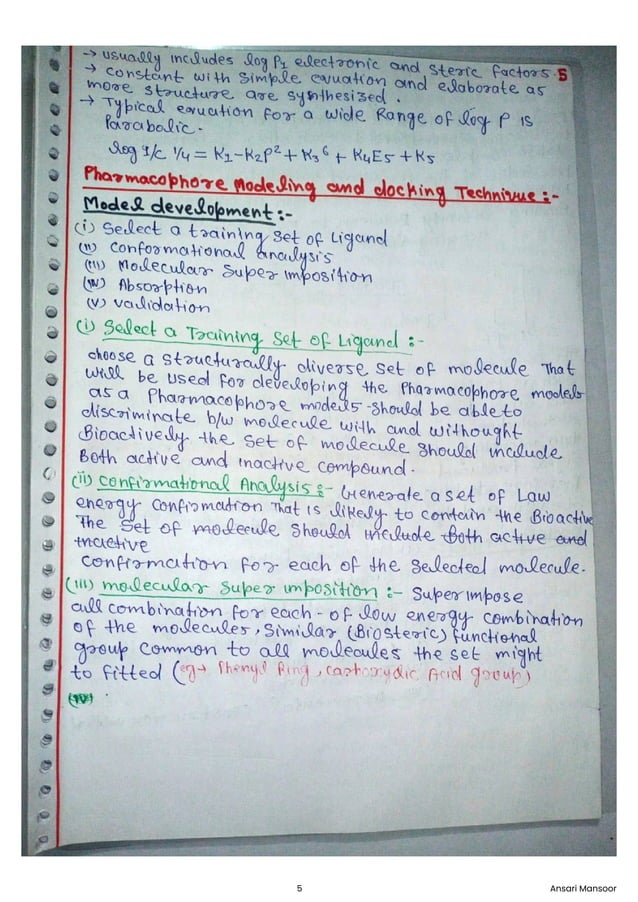 → usually includes log P1 electronic and steric factors. 5
→ constant with simple equation and elaborate as
more structure are synthesized.
→ Typical equation for a wide Range of log P is
Parabolic.
log 1/c 1/4 = K1 - K2P² + K3 6 + K4ES + K5
Pharmacophore Modeling and docking Technique :-
Model development :-
(i) Select a training set of Ligand
(ii) conformational analysis
(iii) Molecular Super imposition
(iv) Absorption
(v) validation
(i) Select a Training Set of Ligand :-
choose a structurally diverse set of molecule That
will be used for developing the Pharmacophore models
as a Pharmacophore models should be able to
discriminate b/w molecule with and withought
Bioactively the set of molecule should include
Both active and inactive compound.
(ii) confirmational Analysis :- Generate a set of Law
energy confirmation That is likely to contain the Bioactive
The set of molecule should include Both active and
inactive
confirmation for each of the selected molecule.
(iii) molecular super imposition :- Super impose
all combination for each - of low energy combination
of the molecules, similar (Biosteric) functional
group common to all molecules the set might
to fitted (eg → Phenyl Ring, carboxydic Acid group)
(iv)
5
Ansari Mansoor